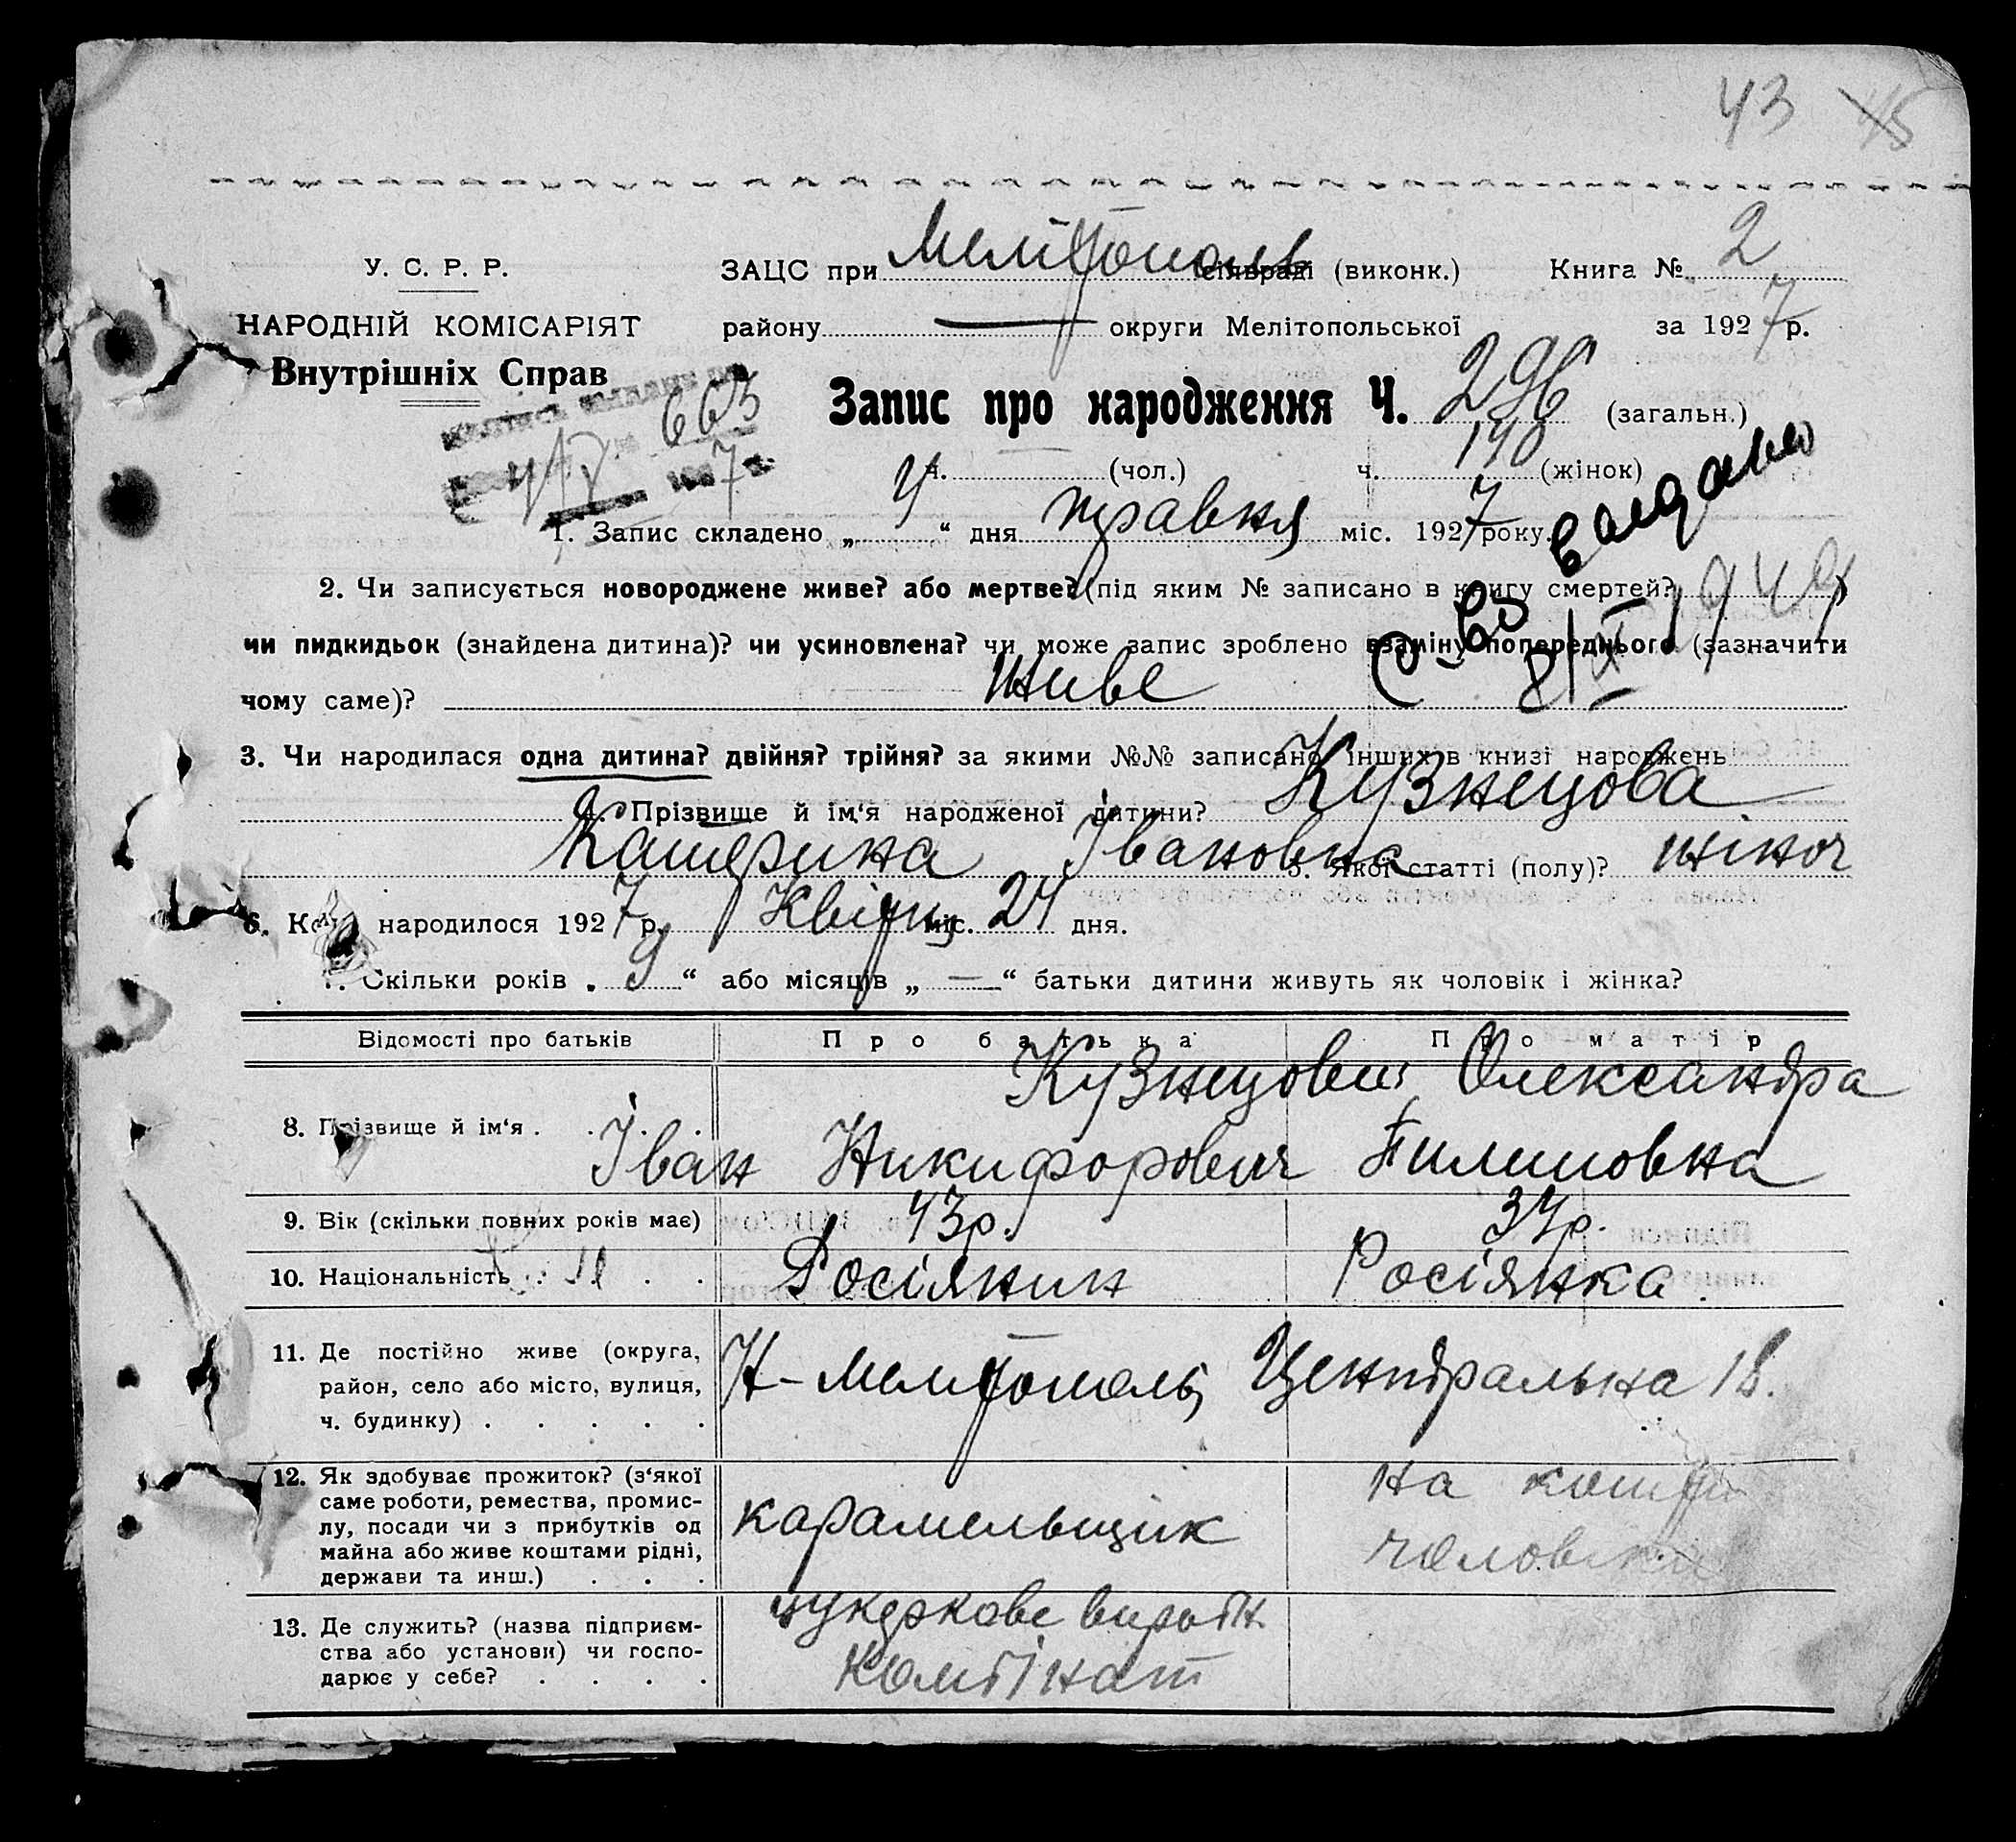 43 45
У. С. Р. Р.
НАРОДНІЙ КОМІСАРІЯТ
Внутрішніх Справ
ЗАЦС при Мелітополь сільраді (виконк.) Книга № 2
району — округи Мелітопольської за 1927 р.
663
Запис про народження Ч. 296 (загальн.)
ч. — (чол.) ч. 140 (жінок)
1. Запис складено „ 4 “ дня травня міс. 1927 року.
С-во выдано
8/XI 1949
2. Чи записується новороджене живе? або мертве? (під яким № записано в книгу смертей?)
чи пидкидьок (знайдена дитина)? чи усиновлена? чи може запис зроблено взаміну попереднього (зазначити
чому саме)? живе
3. Чи народилася одна дитина? двійня? трійня? за якими №№ записано інших в книзі народжень
4. Прізвище й ім‘я народженої дитини? Кузнецова
Катерина Івановна 5. Якої статті (полу)? жіноч
6. Коли народилося 1927 р. Квітня міс. 24 дня.
7. Скільки років „ 9 “ або місяців „ — “ батьки дитини живуть як чоловік і жінка?
Відомості про батьків Про батька Про матір
8. Прізвище й ім‘я . . . . Кузнецови Олександра
Іван Никифорович Пилиповна
9. Вік (скільки повних років має) 43р. 34р.
10. Національність . . . Росіянин Росіянка
11. Де постійно живе (округа,
район, село або місто, вулиця,
ч. будинку) . . . . . Н-Мелітополь, Центральна 18.
12. Як здобуває прожиток? (з‘якої
саме роботи, ремества, промис-
лу, посади чи з прибутків од
майна або живе коштами рідні,
держави та инш.) . . . карамельщик на кошти
чоловіка
13. Де служить? (назва підприєм-
ства або установи) чи госпо-
дарює у себе? . . . . цукеркове виробн.
Комбінат